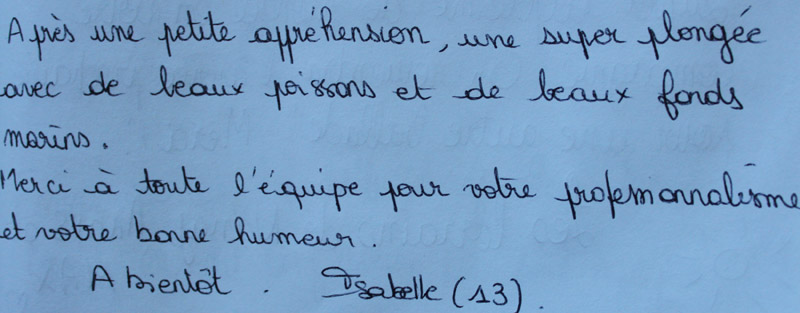 Après une petite appréhension, une super plongée
avec de beaux poissons et de beaux fonds
marins.
Merci à toute l'équipe pour votre professionnalisme
et votre bonne humeur.
A bientôt. Isabelle (13).